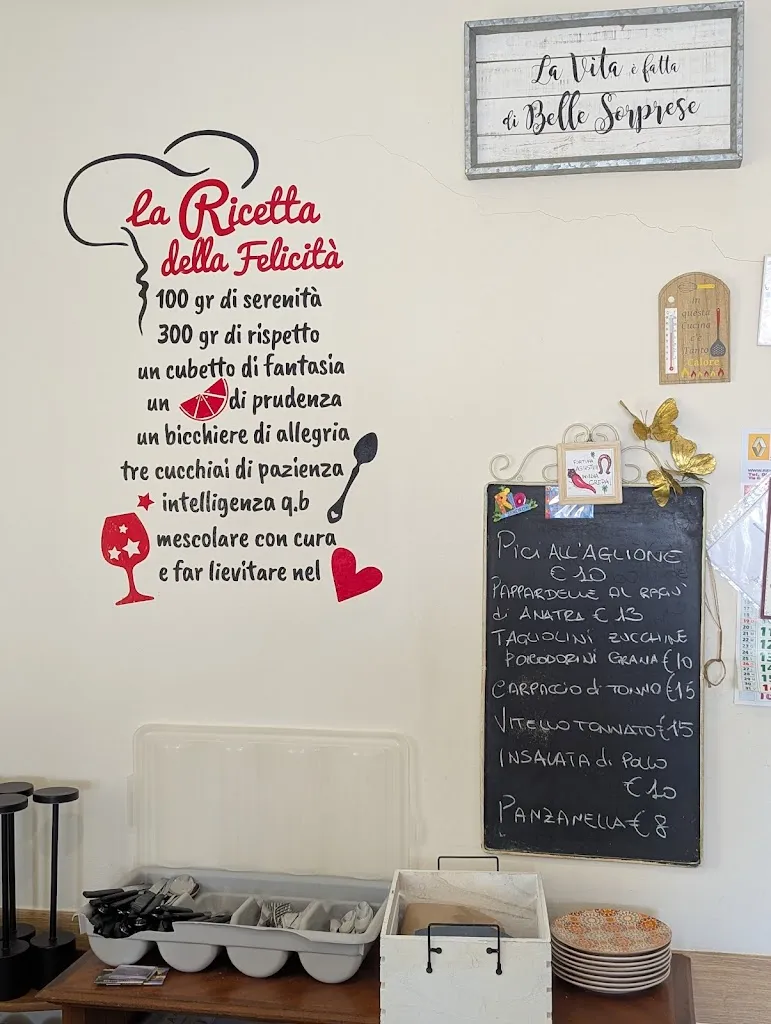 La Vita è fatta
di Belle Sorprese
la Ricetta
della Felicità
100 gr di serenità
300 gr di rispetto
un cubetto di fantasia
un di prudenza
un bicchiere di allegria
tre cucchiai di pazienza
intelligenza q.b
mescolare con cura
e far lievitare nel
in
questa
Cucina
c'è
Tanto
Calore
PICI ALL'AGLIONE
€ 10
PAPPARDELLE AL RAGU'
di ANATRA € 13
TAGLIOLINI ZUCCHINE
POMODORINI GRANA € 10
CARPACCIO di TONNO € 15
VITELLO TONNATO € 15
INSALATA di POLLO
€ 10
PANZANELLA € 8